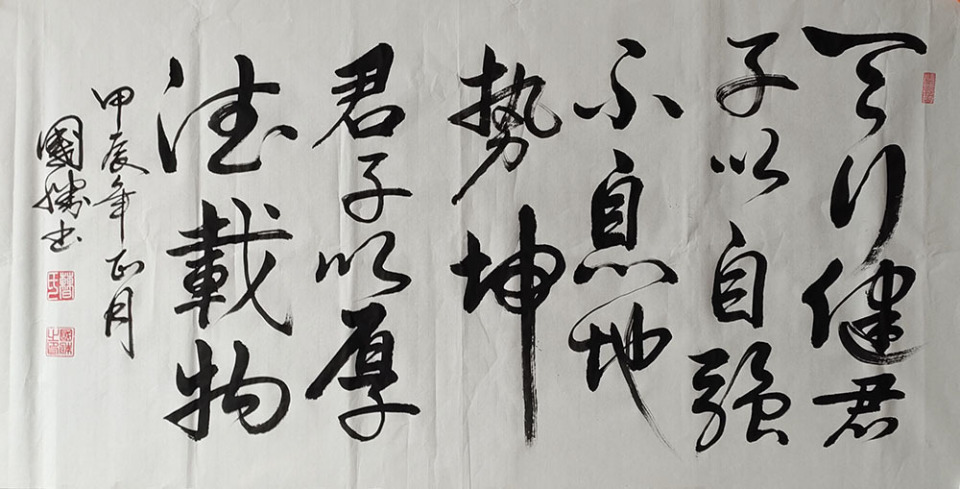 天行健君
子以自强
不息地
势坤
君子以厚
德载物
甲辰年正月
國勝书